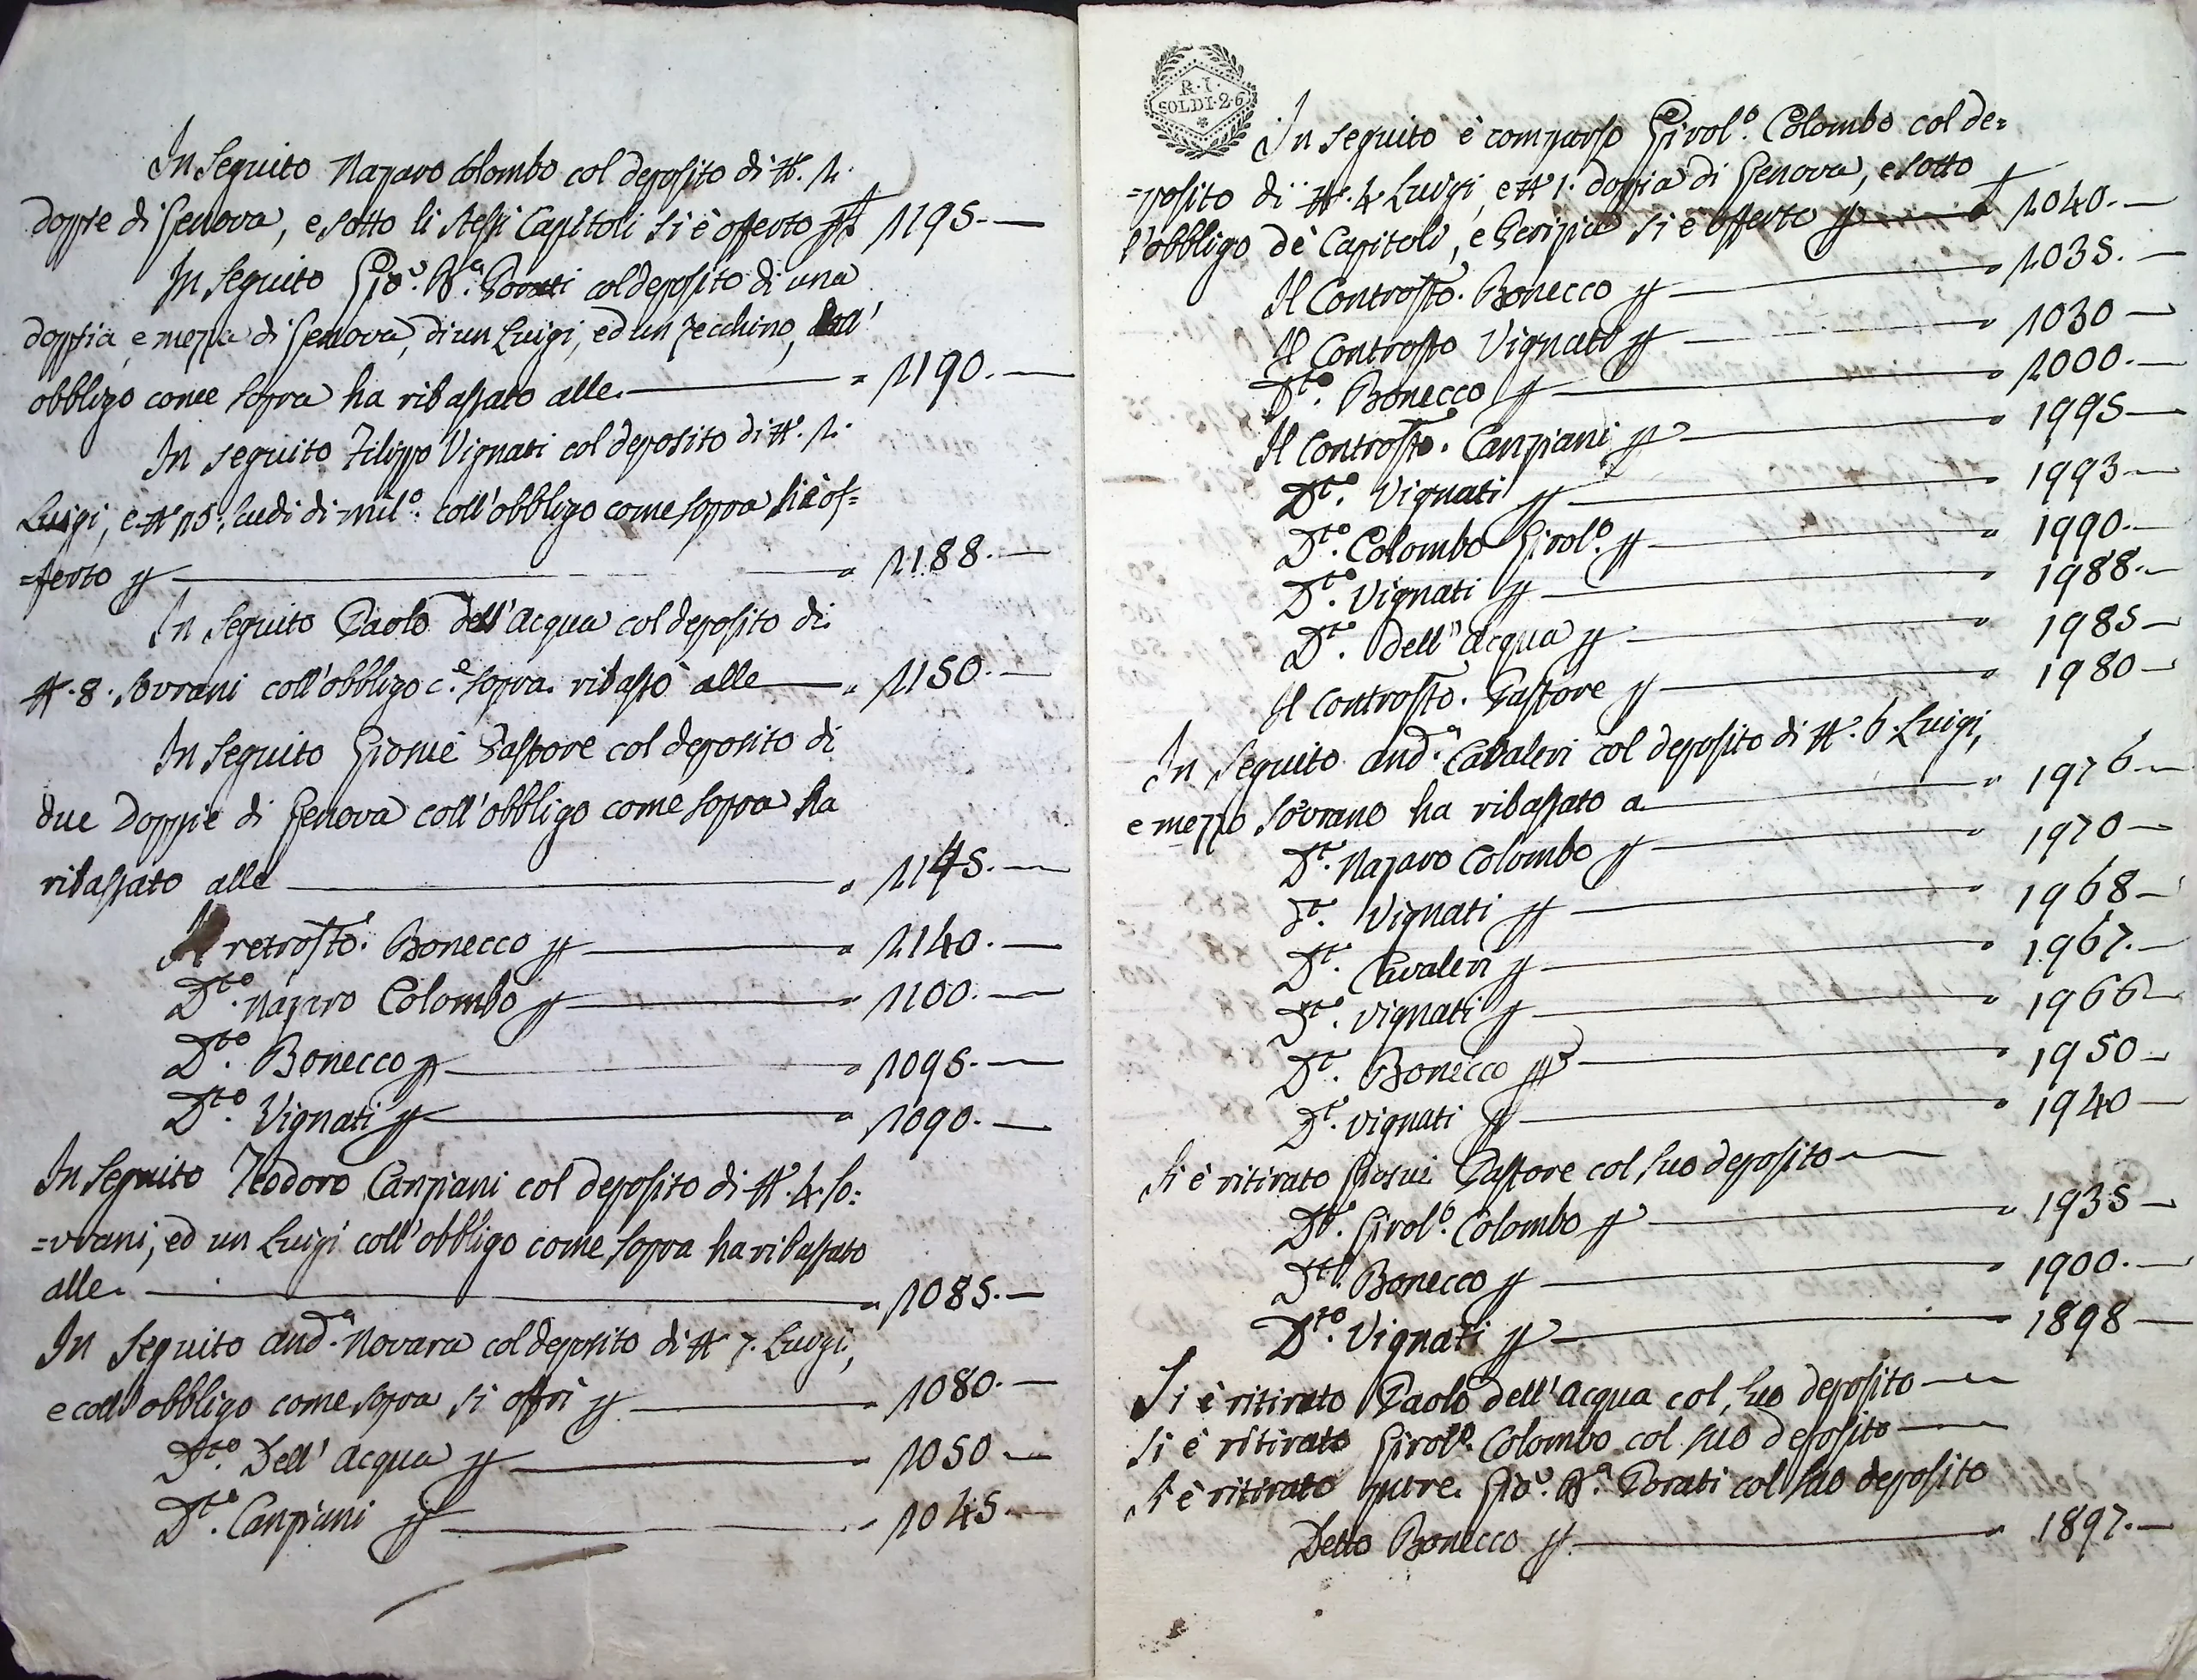 In Seguito Nazaro Colombo col deposito di N. 2.
doppie di Genova, e sotto li stessi Capitoli si è offerto p 2195.—
In seguito Gio. Ba. Porati col deposito di una
doppia, e mezza di Genova, di un Luigi, ed un zecchino, coll'
obbligo come sopra ha ribassato alle — " 2190.—
In seguito Filippo Vignati col deposito di N. 2.
Luigi, e N. 25. scudi di mil.o coll'obbligo come sopra si è of=
=ferto p — " 2188.—
In seguito Paolo dell'Acqua col deposito di
N. 8. Sovrani coll'obbligo c.e sopra ribassò alle — " 2150.—
In Seguito Giosuè Pastore col deposito di
due Doppie di Genova coll'obbligo come sopra ha
ribassato alle — " 2145.—
Il retrosto. Bonecco p — " 2140.—
Dto. Nazaro Colombo p — " 2100.—
Dto. Bonecco p — " 2095.—
Dto. Vignati p — " 2090.—
In Seguito Teodoro Canziani col deposito di N. 4. So=
=vrani, ed un Luigi coll'obbligo come sopra ha ribassato
alle. — " 2085.—
In Seguito And.a Novara col deposito di N. 7. Luigi,
e coll'obbligo come sopra si offrì p — " 2080.—
Dto. Dell'Acqua p — " 2050.—
Dto. Canziani p — " 2045.—
R. I.
SOLDI. 26
In seguito è comparso Girol.o Colombo col de=
=posito di N. 4 Luigi, e N. 1. doppia di Genova, e sotto
l'obbligo dè Capitoli, e Perizia si è offerto p — 2040.—
Il Controsto. Bonecco p — " 2035.—
Il Controsto Vignati p — " 2030.—
Dto. Bonecco p — " 2000.—
Il Controsto. Canziani p — " 1995.—
Dto. Vignati p — " 1993.—
Dto. Colombo Girol.o p — " 1990.—
Dto. Vignati p — " 1988.—
Dto. dell'Acqua p — " 1985.—
Il controsto. Pastore p — " 1980.—
In Seguito And.a Cavaleri col deposito di N. 6. Luigi,
e mezzo Sovrano ha ribassato a — " 1976.—
Dt. Nazaro Colombo p — " 1970.—
Dt. Vignati p — " 1968.—
Dt. Cavaleri p — " 1967.—
Dt. Vignati p — " 1966.—
Dt. Bonecco p — " 1950.—
Dt. Vignati p — " 1940.—
Si è ritirato Giosuè Pastore col suo deposito —
Dto. Girol.o Colombo p — " 1935.—
Dto. Bonecco p — " 1900.—
Dto. Vignati p — " 1898.—
Si è ritirato Paolo dell'Acqua col suo deposito —
Si è ritirato Girol.o Colombo col suo deposito —
Si è ritirato pure Gio. Ba. Porati col suo deposito
Detto Bonecco p. — " 1897.—